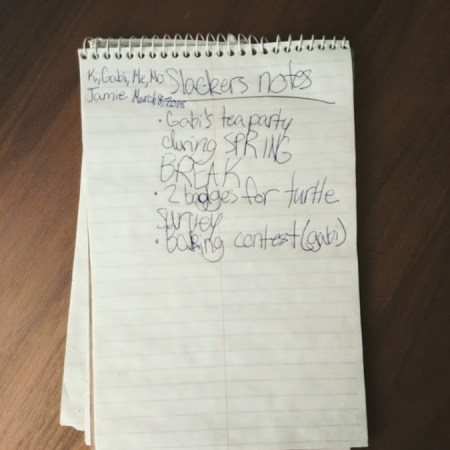 Ki, Gabi, Me, Mo, Slackers notes
Jamie March 8/2015
• Gabi's tea party
during SPRING
BREAK
• 2 badges for turtle
survey
• Baking contest (gabi)